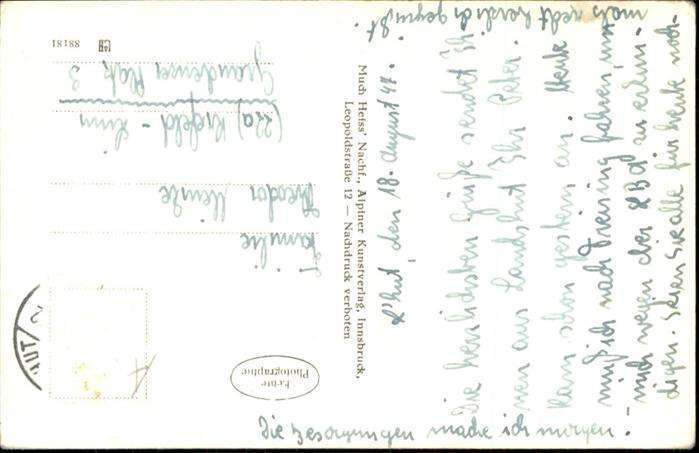 L'hut, den 18. August 47.
Die herzlichsten Grüße sendet Ih-
nen aus Landshut Ihr Peter.
Kam schon gestern an. Heute
muß ich nach Freising fahren, um
mich wegen der RBD zu erkun-
digen. Seien Sie alle für heute noch-
mals recht herzlich gegrüßt.
Die Besorgungen mache ich morgen.
Much Heiss' Nachf., Alpiner Kunstverlag, Innsbruck,
Leopoldstraße 12 — Nachdruck verboten
Echte
Photographie
Familie
Theodor
(22a) Krefeld - Linn
Graudenzer Platz 3
88181